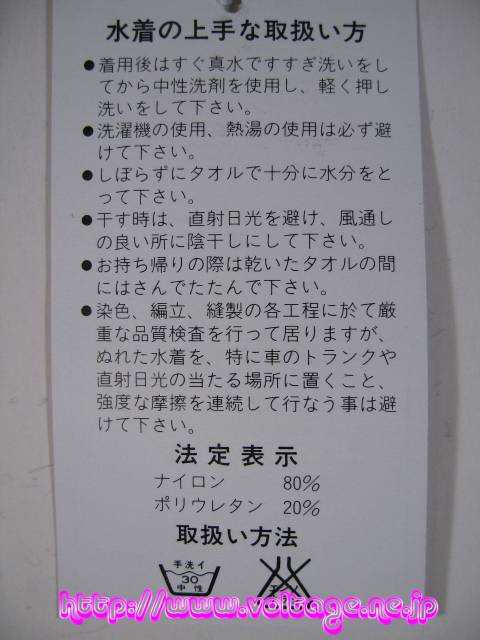 水着の上手な取扱い方
●着用後はすぐ真水ですすぎ洗いをし
てから中性洗剤を使用し、軽く押し
洗いをして下さい。
●洗濯機の使用、熱湯の使用は必ず避
けて下さい。
●しぼらずにタオルで十分に水分をと
って下さい。
●干す時は、直射日光を避け、風通し
の良い所に陰干しにして下さい。
●お持ち帰りの際は乾いたタオルの間
にはさんでたたんで下さい。
●染色、編立、縫製の各工程に於て厳
重な品質検査を行って居りますが、
ぬれた水着を、特に車のトランクや
直射日光の当たる場所に置くこと、
強度な摩擦を連続して行なう事は避
けて下さい。
法定表示
ナイロン 80%
ポリウレタン 20%
取扱い方法
手洗イ
30
中性
http://www.voltage.ne.jp